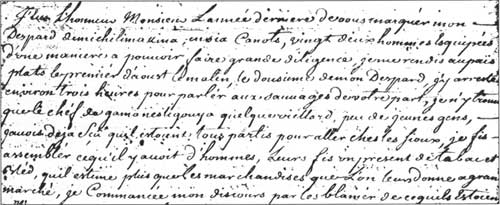 J'eus L'honneur Monsieur L'année derniere de vous marquér mon
Depard de michilimakina, en six Canots, vingt deux hommes Esquipées
d'une maniere a pouvoir faire grande diligence, je me rendis au pais
plats le premier d'aoust Ce matin, le dousiéme de mon Depard, j'y arresté
environ trois heures pour parlér aux sauvages de votre part, je n'y trouv
que le chef de quelque vieillard, peu de jeunes gens,
j'avois deja Sçû qu'il étoient tous partis pour aller ches les Sioux, je fis
assembler ce qu'il y avoit d'hommes, Leurs fis un present de tabac et
Bled, qu'il estime plus que les marchandises que L'on leurs donne a gran
marché, je Commancée mon discours par les blamer de ce qu'ils Estoien